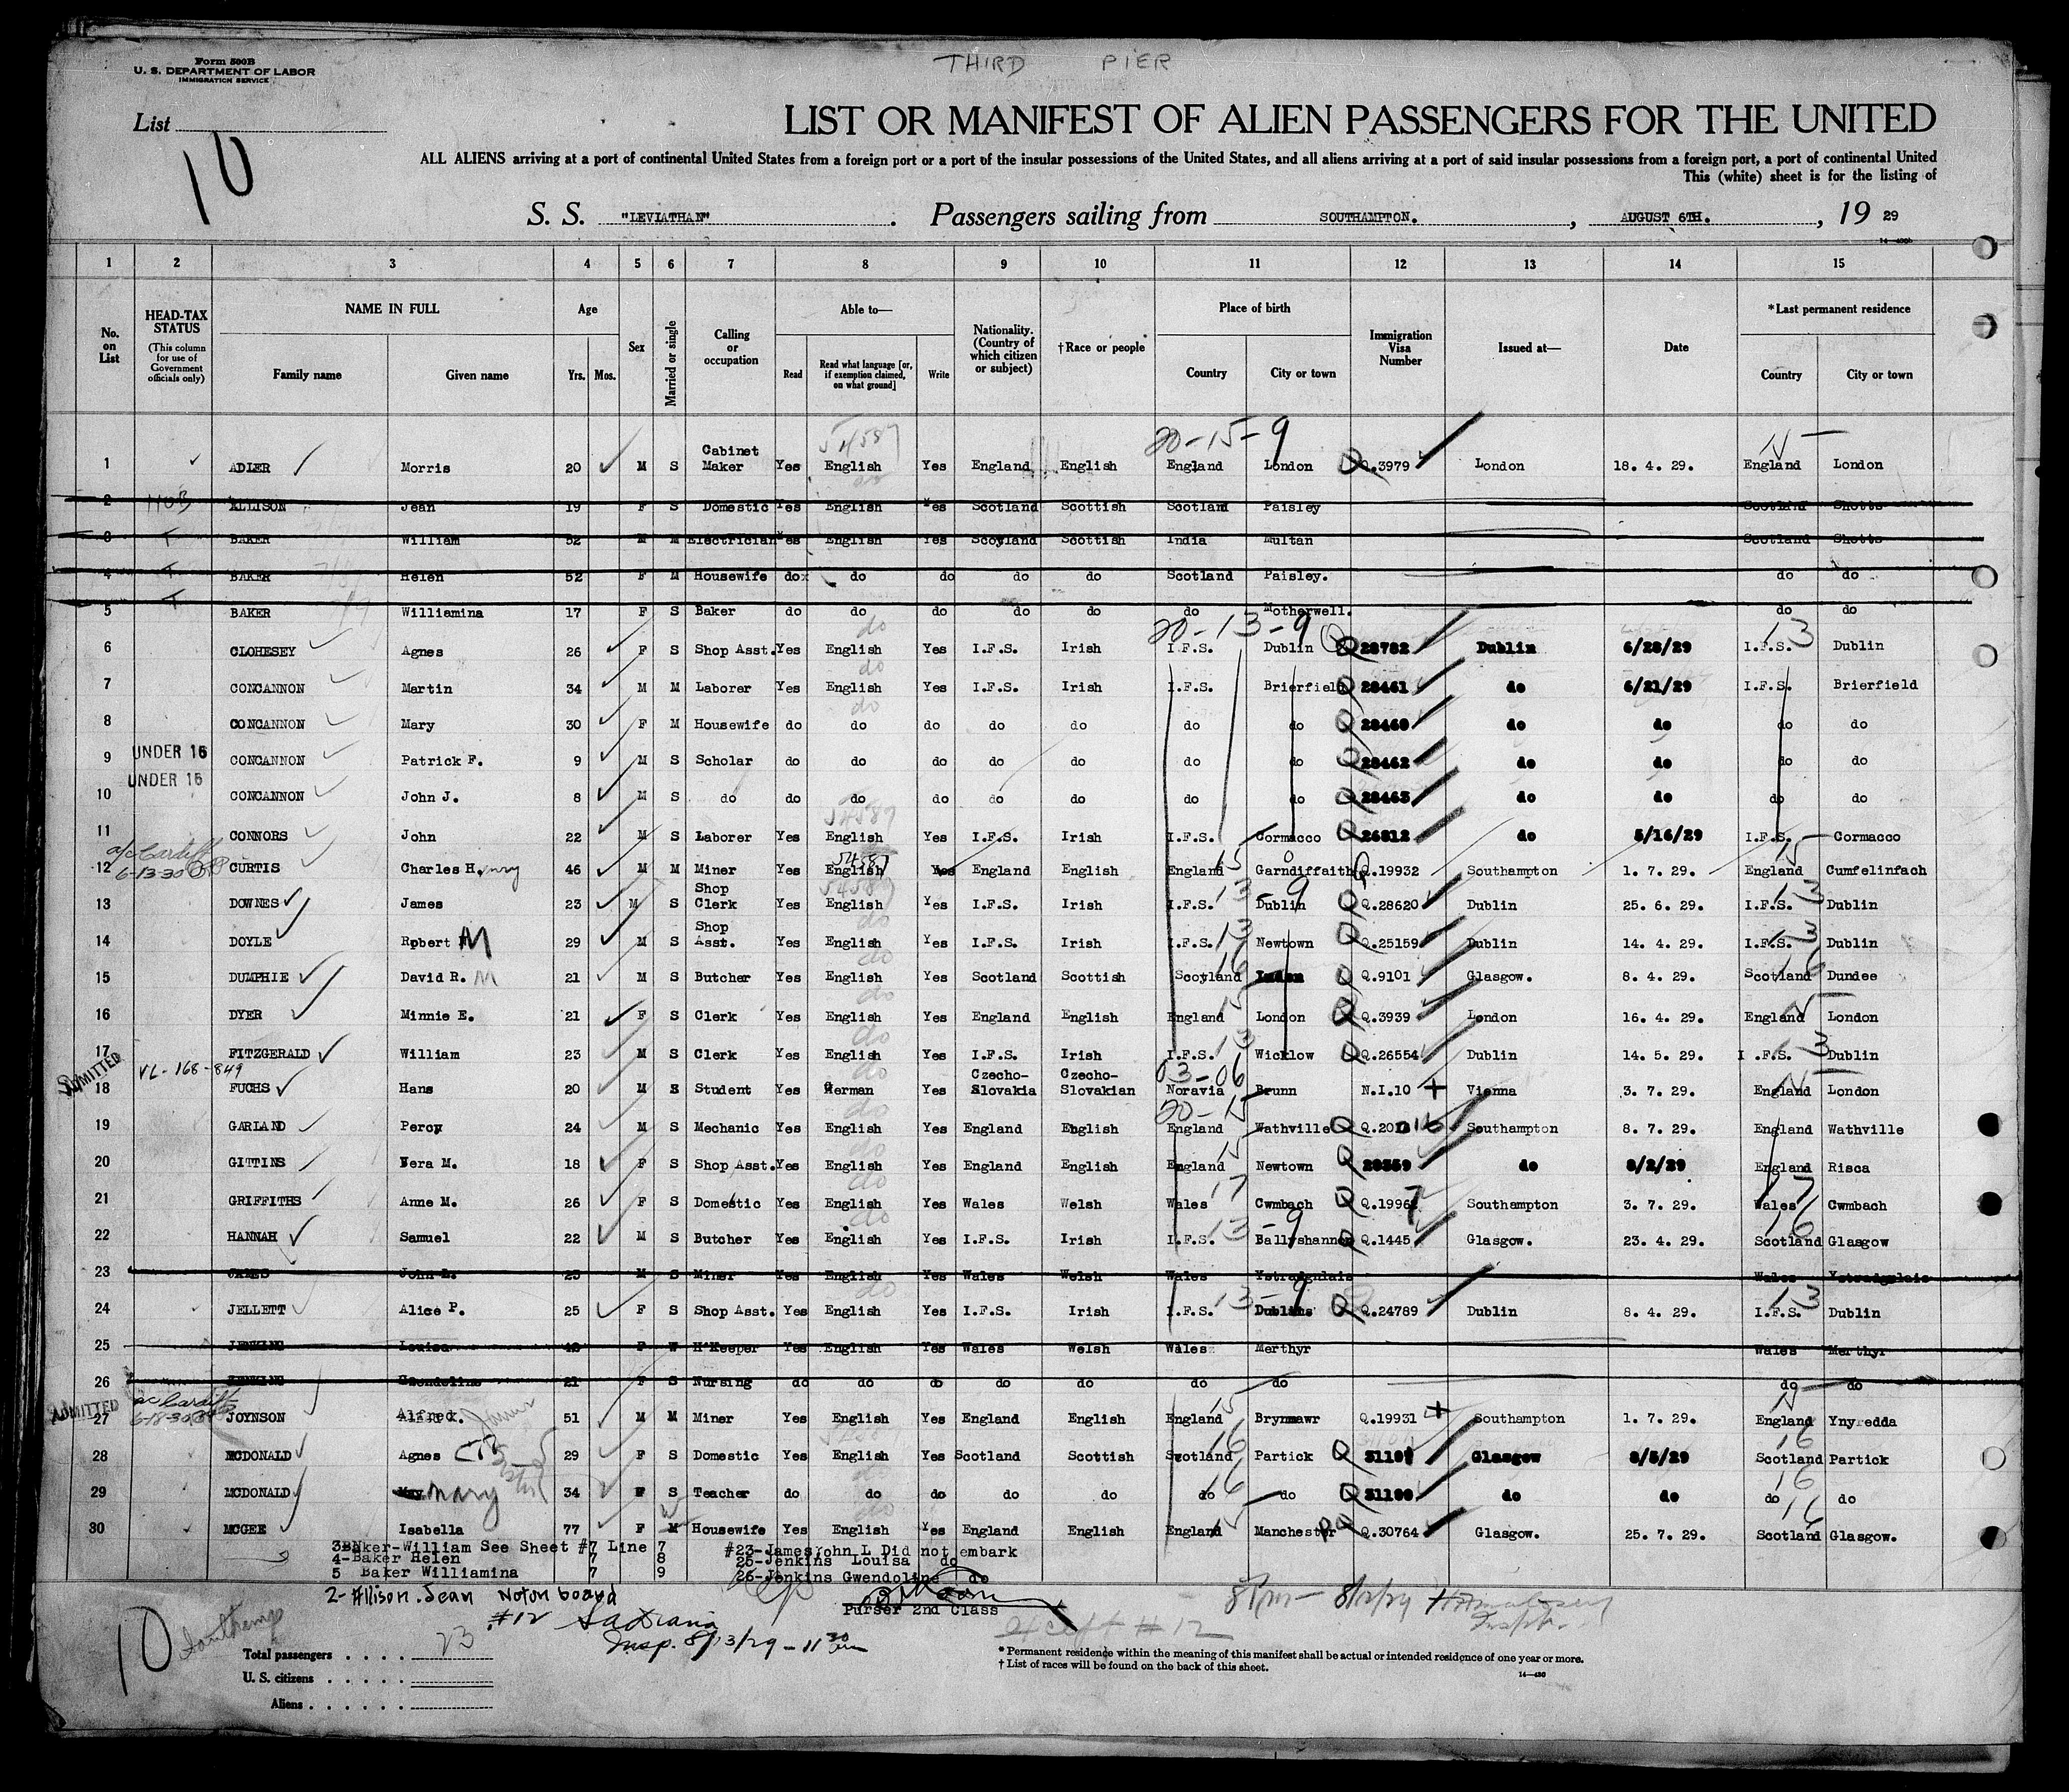 THIRD PIER
Form 500B
U. S. DEPARTMENT OF LABOR
IMMIGRATION SERVICE
List
10
LIST OR MANIFEST OF ALIEN PASSENGERS FOR THE UNITED
ALL ALIENS arriving at a port of continental United States from a foreign port or a port of the insular possessions of the United States, and all aliens arriving at a port of said insular possessions from a foreign port, a port of continental United
This (white) sheet is for the listing of
S. S. "LEVIATHAN" . Passengers sailing from SOUTHAMPTON. , AUGUST 6TH. , 19 29
1 2 3 4 5 6 7 8 9 10 11 12 13 14 15
No. on List
HEAD-TAX STATUS (This column for use of Government officials only)
NAME IN FULL Family name Given name
Age Yrs. Mos.
Sex
Married or single
Calling or occupation
Able to— Read Read what language [or, if exemption claimed, on what ground] Write
Nationality. (Country of which citizen or subject)
†Race or people
Place of birth Country City or town
Immigration Visa Number
Issued at—
Date
*Last permanent residence Country City or town
20-15-9
1 ADLER Morris 20 M S Cabinet Maker Yes English Yes England English England London Q.3979 London 18. 4. 29. England London
2 ELLISON Jean 19 F S Domestic Yes English Yes Scotland Scottish Scotland Paisley Scotland Shotts
3 BAKER William 52 M M Electrician Yes English Yes Scoyland Scottish India Multan Scotland Shotts
4 BAKER Helen 52 F M Housewife do do do do do Scotland Paisley. do do
5 BAKER Williamina 17 F S Baker do do do do do do Motherwell. do do
20-13-9
6 CLOHESEY Agnes 26 F S Shop Asst. Yes English Yes I.F.S. Irish I.F.S. Dublin 28782 Dublin 6/28/29 I.F.S. Dublin
7 CONCANNON Martin 34 M M Laborer Yes English Yes I.F.S. Irish I.F.S. Brierfield 28461 do 6/21/29 I.F.S. Brierfield
8 CONCANNON Mary 30 F M Housewife do do do do do do do 28460 do do do do
9 UNDER 16 CONCANNON Patrick F. 9 M S Scholar do do do do do do do 28462 do do do do
10 UNDER 16 CONCANNON John J. 8 M S do do do do do do do do 28463 do do do do
11 CONNORS John 22 M S Laborer Yes English Yes I.F.S. Irish I.F.S. Cormacco 26812 do 5/16/29 I.F.S. Cormacco
a/c Cardiff
6-13-30
12 CURTIS Charles Henry 46 M M Miner Yes English Yes England English England Garndiffaith Q.19932 Southampton 1. 7. 29. England Cumfelinfach
13 DOWNES James 23 M S Shop Clerk Yes English Yes I.F.S. Irish I.F.S. Dublin Q.28620 Dublin 25. 6. 29. I.F.S. Dublin
14 DOYLE Robert M 29 M S Shop Asst. Yes English Yes I.F.S. Irish I.F.S. Newtown Q.25159 Dublin 14. 4. 29. I.F.S. Dublin
15 DUMPHIE David R. M 21 M S Butcher Yes English Yes Scotland Scottish Scoyland Q.9101 Glasgow. 8. 4. 29. Scotland Dundee
16 DYER Minnie E. 21 F S Clerk Yes English Yes England English England London Q.3939 London 16. 4. 29. England London
17 FITZGERALD William 23 M S Clerk Yes English Yes I.F.S. Irish I.F.S. Wicklow Q.26554 Dublin 14. 5. 29. I.F.S. Dublin
ADMITTED VL-168-849 03-06
18 FUCHS Hans 20 M S Student Yes German Yes Czecho-Slovakia Czecho-Slovakian Noravia Brunn N.I.10 Vienna 3. 7. 29. England London
20-15
19 GARLAND Percy 24 M S Mechanic Yes English Yes England English England Wathville Southampton 8. 7. 29. England Wathville
20 GITTINS Vera M. 18 F S Shop Asst. Yes English Yes England English England Newtown 28359 do 8/2/29 England Risca
21 GRIFFITHS Anne M. 26 F S Domestic Yes English Yes Wales Welsh Wales Cwmbach Q.19967 Southampton 3. 7. 29. Wales Cwmbach
22 HANNAH Samuel 22 M S Butcher Yes English Yes I.F.S. Irish I.F.S. Ballyshannon Q.1445 Glasgow. 23. 4. 29. Scotland Glasgow
23 JAMES John L. 25 M S Miner Yes English Yes Wales Welsh Wales Ystradgnlais Wales Ystradgnlais
24 JELLETT Alice P. 25 F S Shop Asst. Yes English Yes I.F.S. Irish I.F.S. Dublin Q.24789 Dublin 8. 4. 29. I.F.S. Dublin
25 JENKINS Louisa F W H'Keeper Yes English Yes Wales Welsh Wales Merthyr Wales Merthyr
26 JENKINS Gwendoline 21 F S Nursing do do do do do do do do do
ADMITTED a/c Cardiff
6-18-30
27 JOYNSON Alfred 51 M M Miner Yes English Yes England English England Brynmawr Q.19931 Southampton 1. 7. 29. England Ynyredda
28 MCDONALD Agnes 29 F S Domestic Yes English Yes Scotland Scottish Svotland Partick Glasgow 8/5/29 Scotland Partick
29 MCDONALD Mary 34 F S Teacher do do do do do do do 31100 do do do do
30 MCGEE Isabella 77 F M Housewife Yes English Yes England English England Manchester Q.30764 Glasgow. 25. 7. 29. Scotland Glasgow.
3 Baker-William See Sheet #7 Line 7 #23-James John L Did not embark
4-Baker Helen 7 8 25-Jenkins Louisa do
5 Baker Williamina 7 9 26-Jenkins Gwendoline do
2-Allison. Jean Not on board
Purser 2nd Class
#12
Insp. 8/13/29 - 11 30 am
Except #12
10 Southamp
Total passengers . . . . 23
U. S. citizens . . . . .
Aliens . . . . . .
* Permanent residence within the meaning of this manifest shall be actual or intended residence of one year or more.
† List of races will be found on the back of this sheet.
14—430